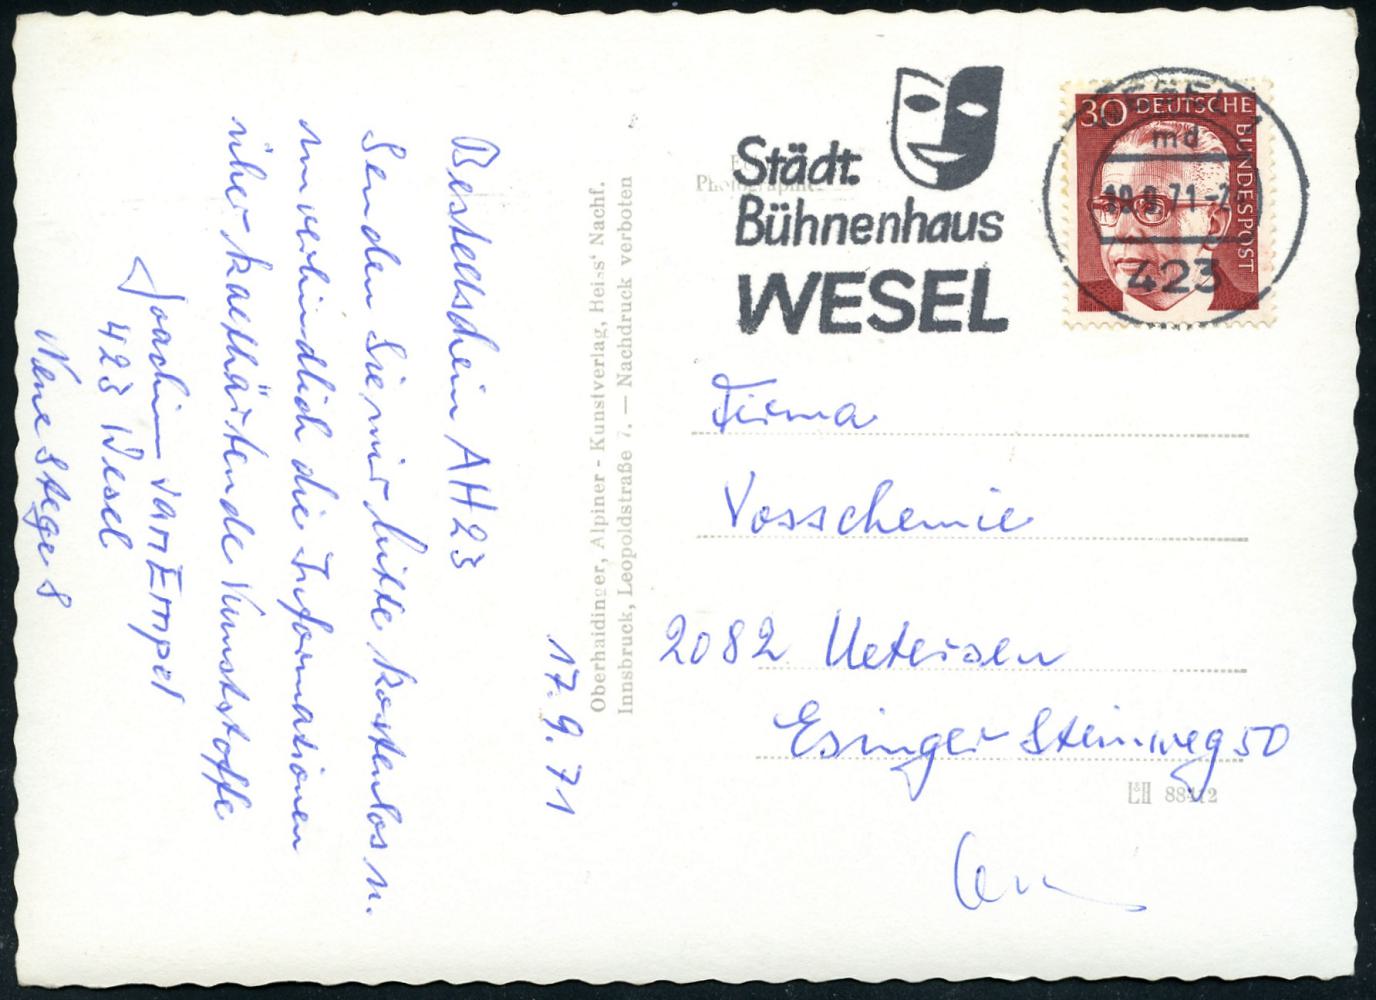 17.9.71
Bestellschein AH 23
Senden Sie mir bitte kostenlos u.
unverbindlich die Informationen
über kalthärtende Kunststoffe
Joachim van Empel
423 Wesel
Neue Stege 8
Oberhaidinger, Alpiner-Kunstverlag, Heiss' Nachf.
Innsbruck, Leopoldstraße 7. — Nachdruck verboten
Städt.
Bühnenhaus
WESEL
30 DEUTSCHE BUNDESPOST
WESEL 1
md
423
Firma
Vosschemie
2082 Uetersen
Esinger Steinweg 50
88412